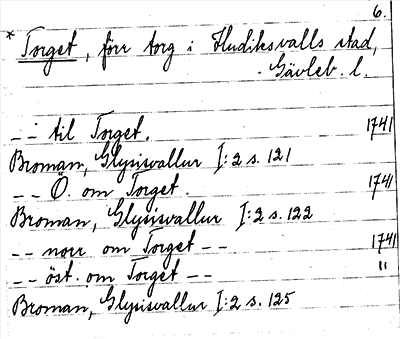 6.
* Torget, förr torg i Hudiksvalls stad,
Gävleb. l.
-- til Torget. 1741
Broman, Glysisvallur I:2 s. 121
-- Ö. om Torget. 1741
Broman, Glysisvallur I:2 s. 122
-- norr om Torget -- 1741
-- öst. om Torget -- "
Broman, Glysisvallur I:2 s. 125